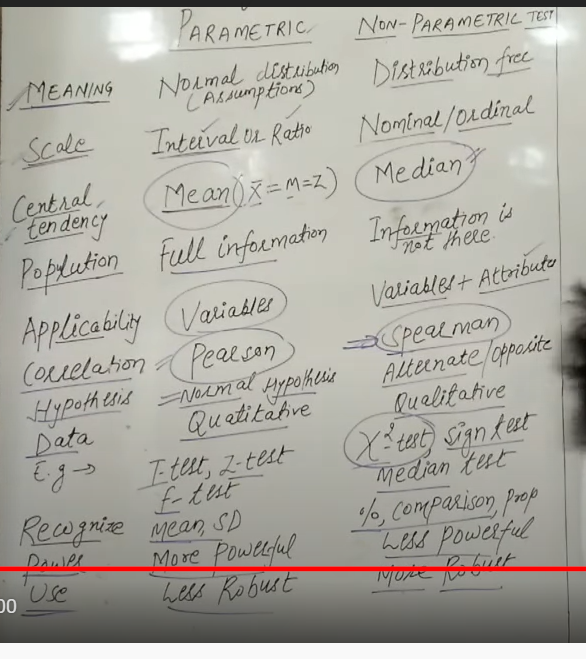 PARAMETRIC NON-PARAMETRIC TEST
MEANING Normal distribution Distribution free
(Assumptions)
Scale Interval or Ratio Nominal/Ordinal
Central Mean (x̄=M=Z) Median
tendency
Poplution Full information Information is
not there.
Applicability Variables Variables + Attributes
Correlation Pearson → Spearman
Hypothesis Normal Hypothesis Alternate/opposite
Data Quatitative Qualitative
E.g → T-test, Z-test X²-test, sign test
f-test Median test
Recognize Mean, SD %, Comparison, Prop
Power More Powerful Less Powerful
Use Less Robust More Robust
00